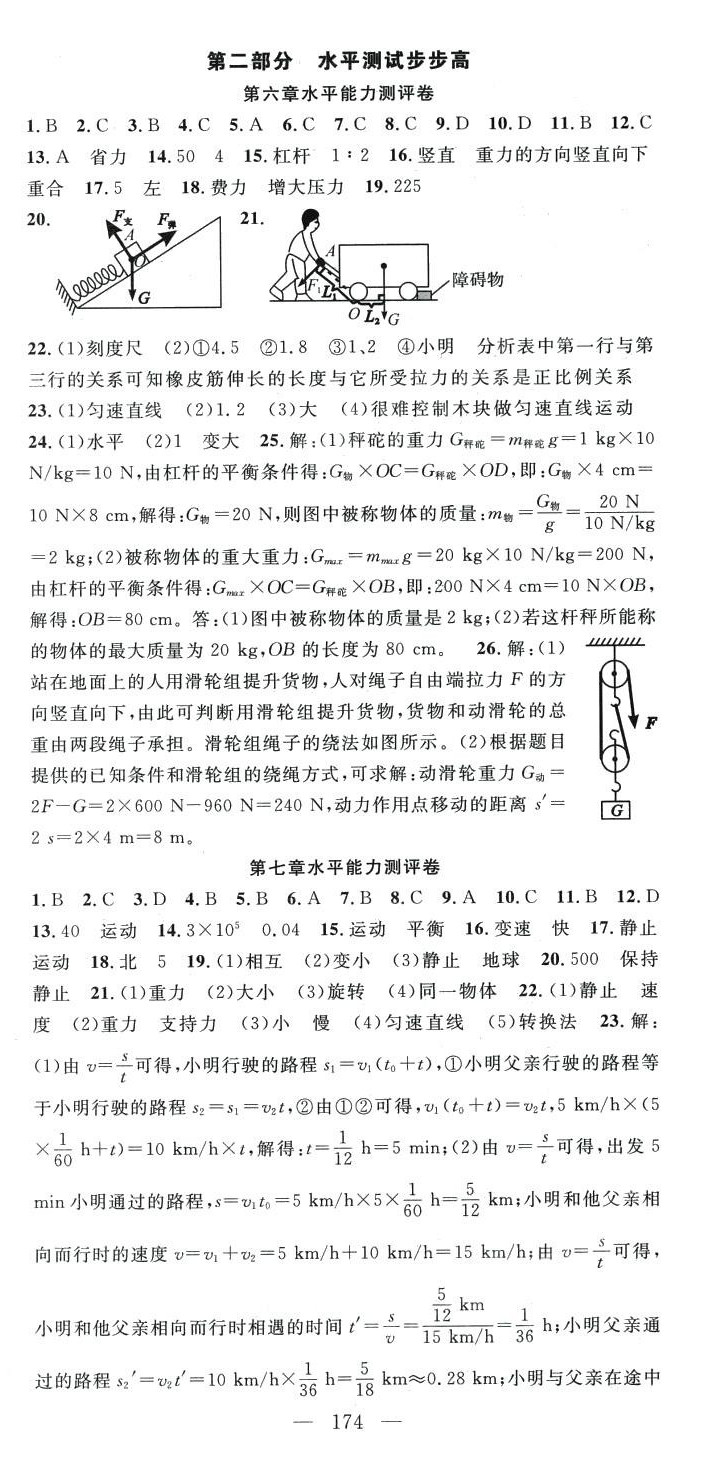 第二部分　水平测试步步高
第六章水平能力测评卷
1. B　2. C　3. B　4. C　5. A　6. C　7. C　8. C　9. D　10. D　11. B　12. C
13. A　省力　14. 50　4　15. 杠杆　1∶2　16. 竖直　重力的方向竖直向下
重合　17. 5　左　18. 费力　增大压力　19. 225
20.　F支　F弹　A　O　G　21.　A　F₁　L₁　O　L₂　G　障碍物
22. (1)刻度尺　(2)①4.5　②1.8　③1、2　④小明　分析表中第一行与第
三行的关系可知橡皮筋伸长的长度与它所受拉力的关系是正比例关系
23. (1)匀速直线　(2)1.2　(3)大　(4)很难控制木块做匀速直线运动
24. (1)水平　(2)1　变大　25. 解:(1)秤砣的重力 G秤砣=m秤砣g=1 kg×10
N/kg=10 N,由杠杆的平衡条件得:G物×OC=G秤砣×OD,即:G物×4 cm=
10 N×8 cm,解得:G物=20 N,则图中被称物体的质量:m物=G物/g=20 N/10 N/kg
=2 kg;(2)被称物体的重大重力:Gmax=mmaxg=20 kg×10 N/kg=200 N,
由杠杆的平衡条件得:Gmax×OC=G秤砣×OB,即:200 N×4 cm=10 N×OB,
解得:OB=80 cm。答:(1)图中被称物体的质量是 2 kg;(2)若这杆秤所能称
的物体的最大质量为 20 kg,OB 的长度为 80 cm。　26. 解:(1)
站在地面上的人用滑轮组提升货物,人对绳子自由端拉力 F 的方
向竖直向下,由此可判断用滑轮组提升货物,货物和动滑轮的总
重由两段绳子承担。滑轮组绳子的绕法如图所示。(2)根据题目
提供的已知条件和滑轮组的绕绳方式,可求解:动滑轮重力 G动=
2F−G=2×600 N−960 N=240 N,动力作用点移动的距离 s′=
2 s=2×4 m=8 m。
F
G
第七章水平能力测评卷
1. B　2. C　3. D　4. B　5. B　6. A　7. B　8. C　9. A　10. C　11. B　12. D
13. 40　运动　14. 3×10⁵　0.04　15. 运动　平衡　16. 变速　快　17. 静止
运动　18. 北　5　19. (1)相互　(2)变小　(3)静止　地球　20. 500　保持
静止　21. (1)重力　(2)大小　(3)旋转　(4)同一物体　22. (1)静止　速
度　(2)重力　支持力　(3)小　慢　(4)匀速直线　(5)转换法　23. 解:
(1)由 v=s/t可得,小明行驶的路程 s₁=v₁(t₀+t),①小明父亲行驶的路程等
于小明行驶的路程 s₂=s₁=v₂t,②由①②可得,v₁(t₀+t)=v₂t,5 km/h×(5
×1/60 h+t)=10 km/h×t,解得:t=1/12 h=5 min;(2)由 v=s/t可得,出发 5
min 小明通过的路程,s=v₁t₀=5 km/h×5×1/60 h=5/12 km;小明和他父亲相
向而行时的速度 v=v₁+v₂=5 km/h+10 km/h=15 km/h;由 v=s/t可得,
小明和他父亲相向而行时相遇的时间 t′=s/v=(5/12 km)/(15 km/h)=1/36 h;小明父亲通
过的路程 s₂′=v₂t′=10 km/h×1/36 h=5/18 km≈0.28 km;小明与父亲在途中
— 174 —